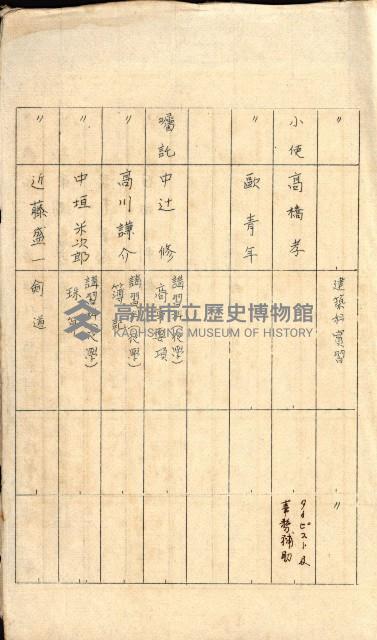 〃
建築科實習
〃
小使
高橋孝
タイピスト及
事務補助
〃
歐青年
囑託
中辻修
講習科(夜學)
高
要項
〃
高川謙介
講習科(夜學)
簿記
〃
中垣米次郎
講習科(夜學)
珠算
〃
近藤盛一
劍道
高雄市立歷史博物館
KAOHSIUNG MUSEUM OF HISTORY